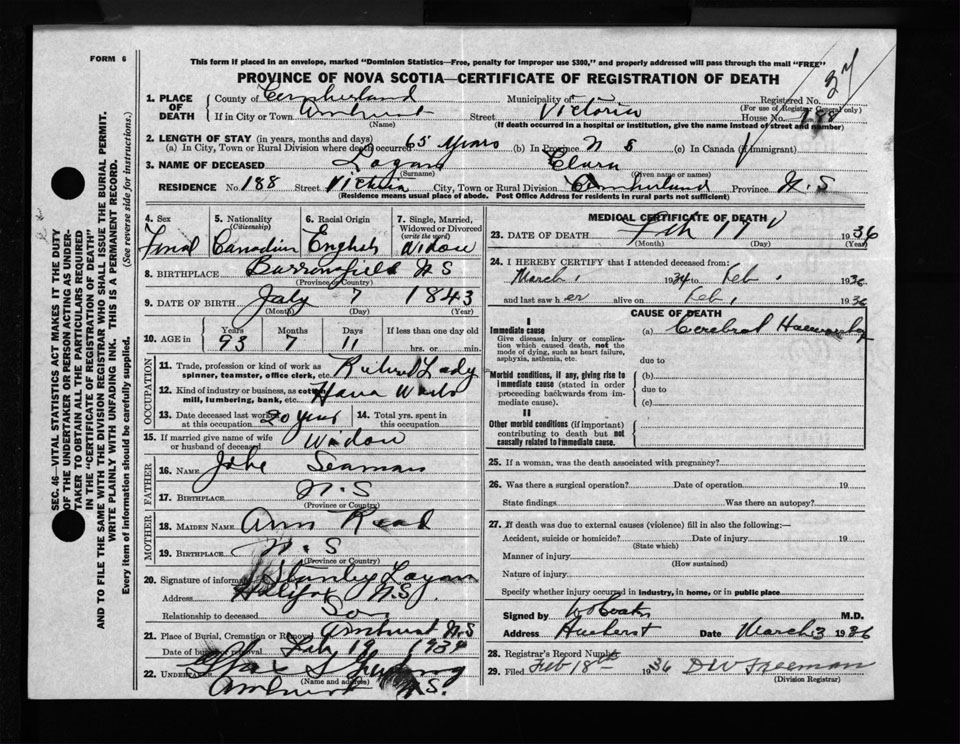 FORM 6
This form if placed in an envelope, marked "Dominion Statistics—Free, penalty for improper use $300," and properly addressed will pass through the mail "FREE"
PROVINCE OF NOVA SCOTIA—CERTIFICATE OF REGISTRATION OF DEATH
37
1. PLACE OF DEATH
County of Cumberland Municipality of Registered No.
(For use of Registrar General only)
If in City or Town Amherst Street Victoria House No. 188
(Name) (If death occurred in a hospital or institution, give the name instead of street and number)
2. LENGTH OF STAY (in years, months and days)
(a) In City, Town or Rural Division where death occurred 65 Years (b) In Province N S (c) In Canada (if immigrant)
3. NAME OF DECEASED Logan Clara
(Surname) (Given name or names)
RESIDENCE No. 188 Street Victoria City, Town or Rural Division Cumberland Province N.S
(Residence means usual place of abode. Post Office Address for residents in rural parts not sufficient)
SEC. 46—VITAL STATISTICS ACT MAKES IT THE DUTY
OF THE UNDERTAKER OR PERSON ACTING AS UNDER-
TAKER TO OBTAIN ALL THE PARTICULARS REQUIRED
IN THE "CERTIFICATE OF REGISTRATION OF DEATH"
AND TO FILE THE SAME WITH THE DIVISION REGISTRAR WHO SHALL ISSUE THE BURIAL PERMIT.
WRITE PLAINLY WITH UNFADING INK. THIS IS A PERMANENT RECORD.
Every item of information should be carefully supplied. (See reverse side for instructions.)
4. Sex 5. Nationality (Citizenship) 6. Racial Origin 7. Single, Married, Widowed or Divorced (write the word)
Femal Canadian English Widow
8. BIRTHPLACE Barronsfield N S
(Province or Country)
9. DATE OF BIRTH July 7 1843
(Month) (Day) (Year)
10. AGE in Years Months Days If less than one day old
93 7 11 hrs. or min.
OCCUPATION
11. Trade, profession or kind of work as spinner, teamster, office clerk, etc. Retired Lady
12. Kind of industry or business, as cotton mill, lumbering, bank, etc.
13. Date deceased last worked at this occupation 20 years 14. Total yrs. spent in this occupation
15. If married give name of wife or husband of deceased Widow
FATHER
16. Name Seaman
17. Birthplace N.S
(Province or Country)
MOTHER
18. Maiden Name Ann Read
19. Birthplace N.S
(Province or Country)
20. Signature of informant Stanley Logan
Address Halifax N.S.
Relationship to deceased Son
21. Place of Burial, Cremation or Removal Amherst N.S
Date of burial or removal Feb 1936
22. UNDERTAKER
(Name and address)
Amherst N.S.
MEDICAL CERTIFICATE OF DEATH
23. DATE OF DEATH Feb 17 1936
(Month) (Day) (Year)
24. I HEREBY CERTIFY that I attended deceased from:
March 1 1934 to Feb 1 1936
and last saw her alive on Feb 1 1936
CAUSE OF DEATH
I
Immediate cause (a) Cerebral Haemorrhage
Give disease, injury or complication which caused death, not the mode of dying, such as heart failure, asphyxia, asthenia, etc.
due to
Morbid conditions, if any, giving rise to immediate cause (stated in order proceeding backwards from immediate cause).
(b)
due to
(c)
II
Other morbid conditions (if important) contributing to death but not causally related to immediate cause.
25. If a woman, was the death associated with pregnancy?
26. Was there a surgical operation? Date of operation 19
State findings Was there an autopsy?
27. If death was due to external causes (violence) fill in also the following:—
Accident, suicide or homicide? Date of injury 19
(State which)
Manner of injury
(How sustained)
Nature of injury
Specify whether injury occurred in industry, in home, or in public place
Signed by M.D.
Address Amherst Date March 3 1936
28. Registrar's Record Number
29. Filed Feb 18 1936 D W Freeman
(Division Registrar)